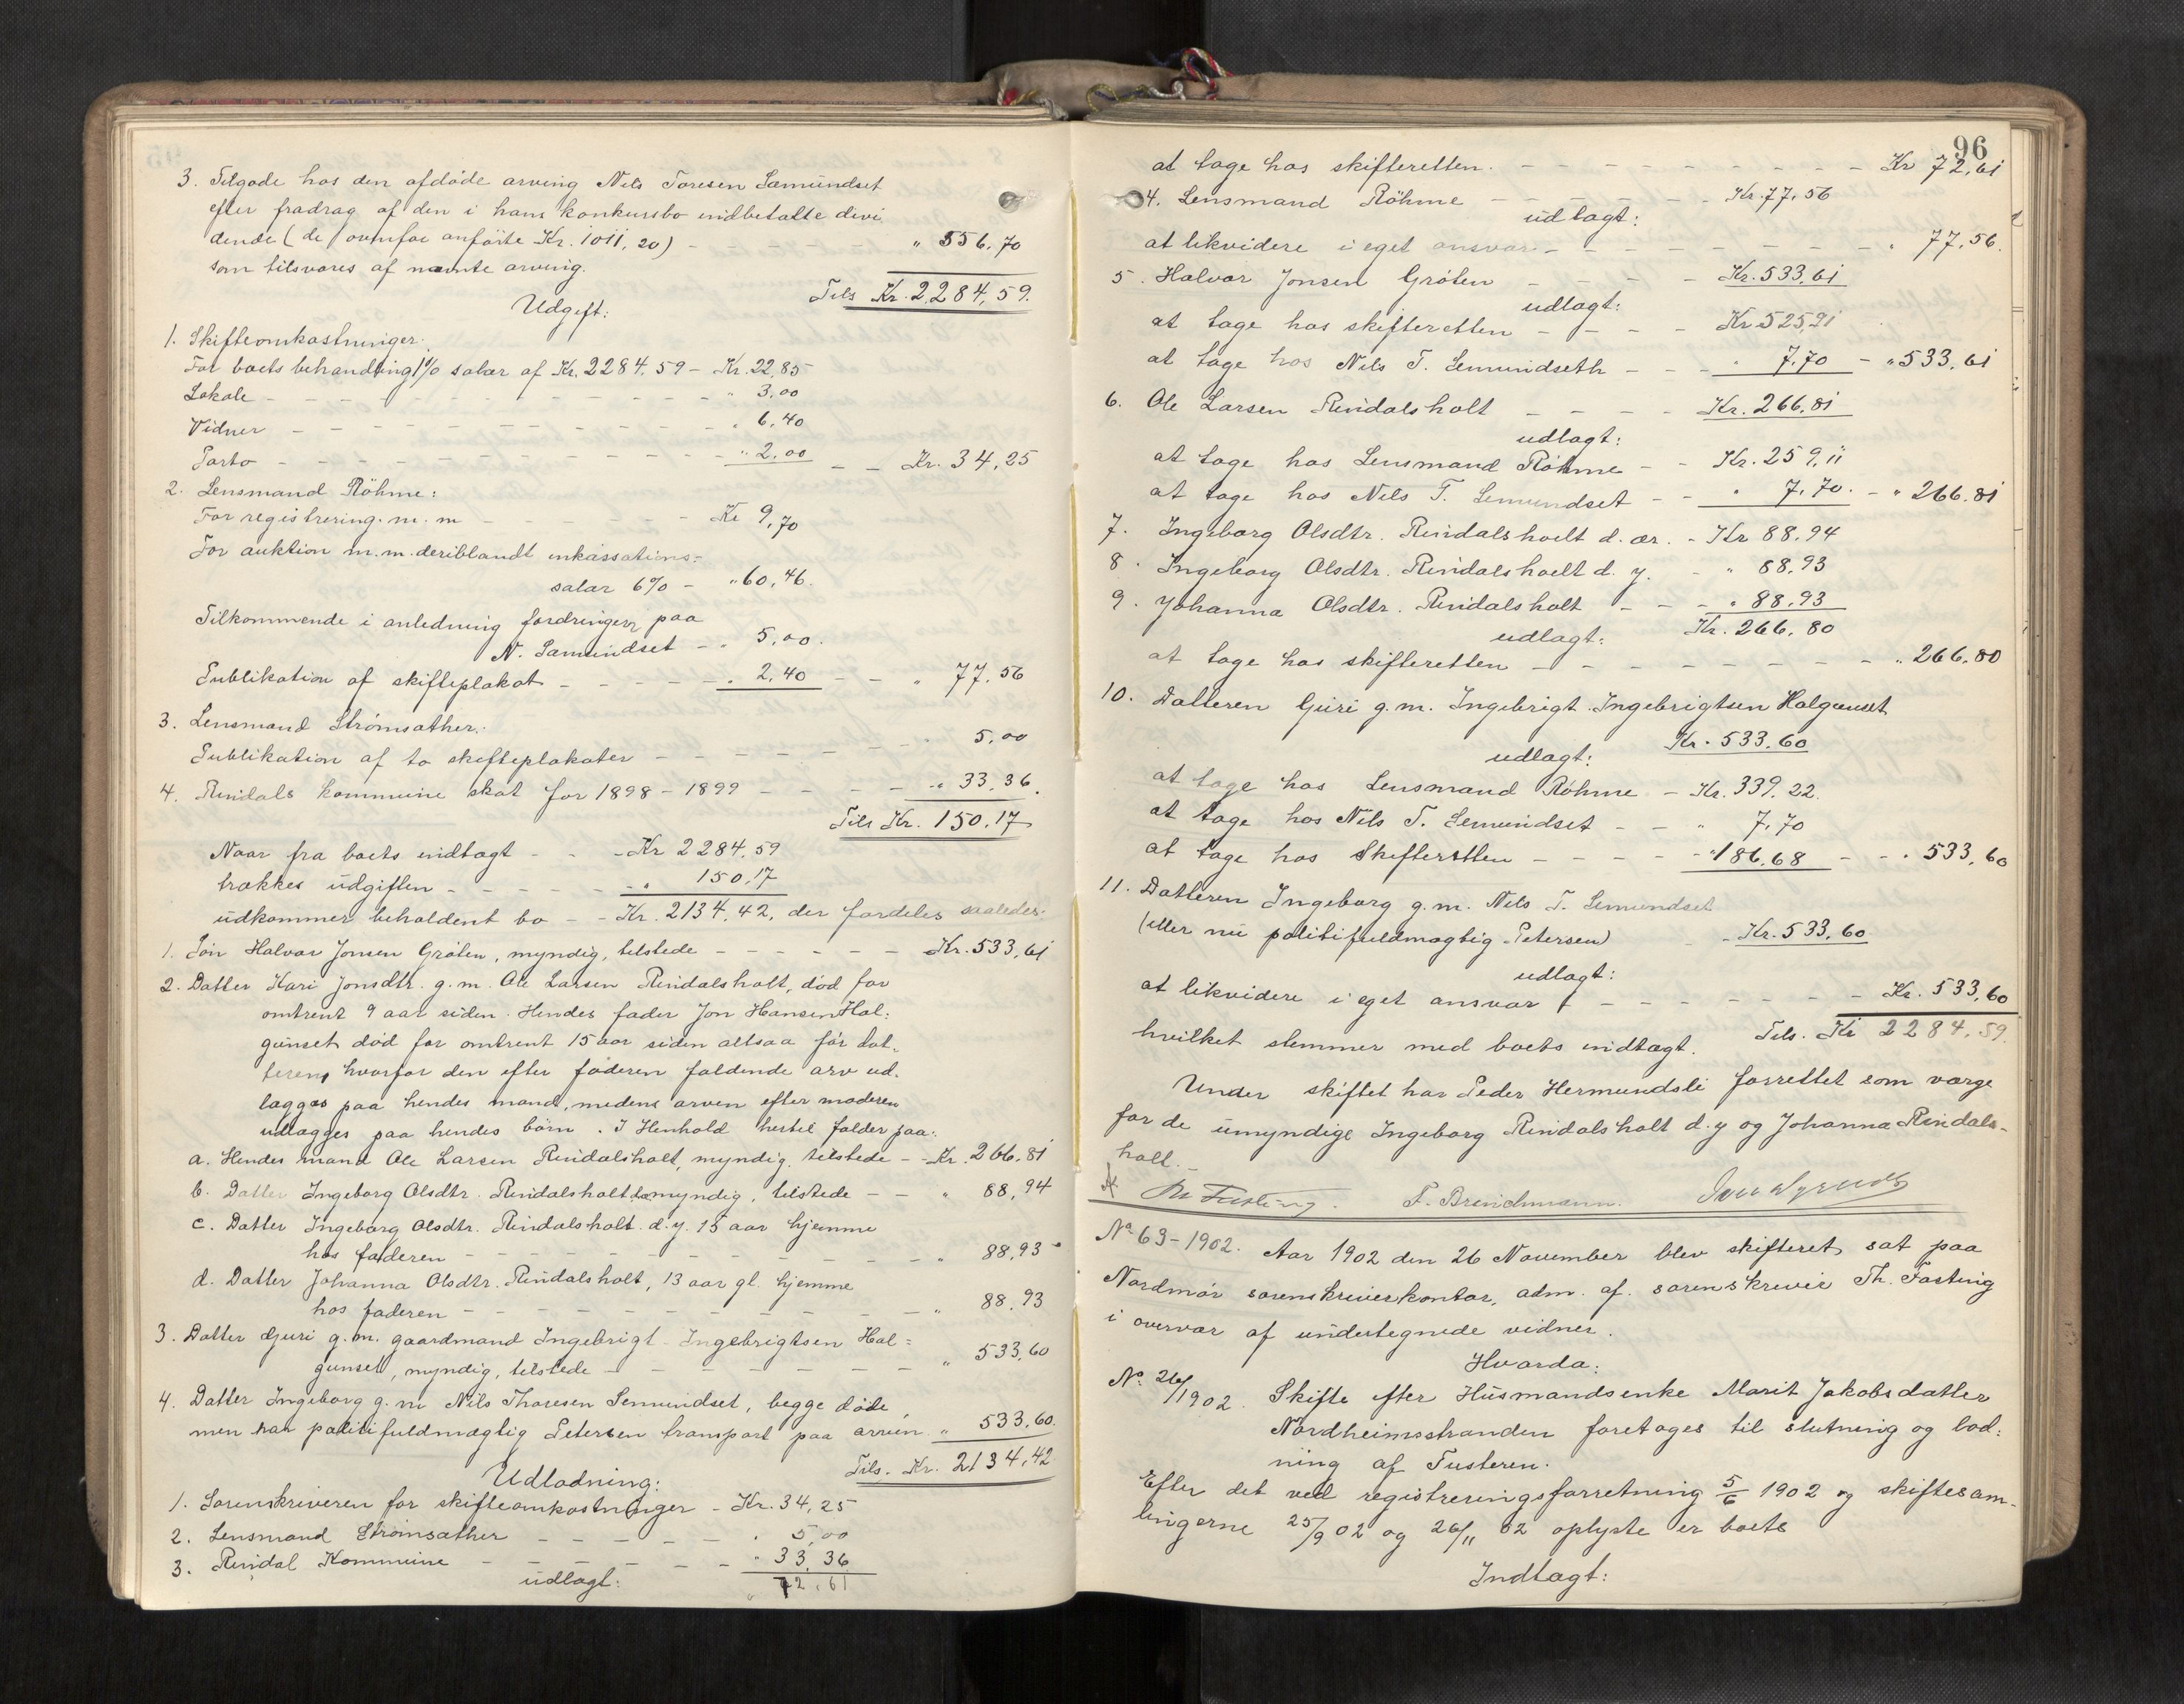 3. Tilgode hos den afdöde arving Nils Toresen Sæmundset
efter fradrag af den i hans konkursbo indbetalte divi
dende (de ovenfor anförte Kr. 1011,20) - - - - - " 556,70
som tilsvares af nævnte arving.
Tils Kr. 2284,59.
Udgift:
1. Skifteomkostninger.
For boets behandling 1% salær af Kr. 2284.59 - Kr. 22,85
Lokale - - - - - " 3,00
Vidner - - - - - " 6,40
Porto - - - - - " 2,00 - - Kr. 34,25
2. Lensmand Röhme:
For registrering m. m - - - - - Kr 9,70
For auktion m.m. deriblandt inkassations-
salær 6% - " 60,46.
Tilkommende i anledning fordringer paa
N. Sæmundset - " 5,00.
Publikation af skifteplakat - - - - - " 2,40 - - " 77,56
3. Lensmand Strömsæther:
Publikation af to skifteplakater - - - - - " 5,00
4. Rindals kommune skat for 1898-1899 - - - - - " 33,36.
Tils Kr. 150.17
Naar fra boets indtægt - - - Kr 2284,59
trækkes udgiften - - - - - " 150,17
udkommer beholdent bo - - Kr. 2134,42, der fordeles saaledes:
1. Sön Halvor Jonsen Gröten, myndig, tilstede - - - - - Kr. 533,61
2. Datter Kari Jonsdtr. g.m. Ole Larsen Rindalsholt, död for
omtrent 9 aar siden. Hendes fader Jon Hansen Hal-
gunset död for omtrent 15 aar siden altsaa för dat-
teren, hvorfor den efter faderen faldende arv ud-
lægges paa hendes mand, medens arven efter moderen
udlægges paa hendes börn. I Henhold hertil falder paa:
a. Hendes mand Ole Larsen Rindalsholt, myndig, tilstede - - Kr. 266.81
b. Datter Ingeborg Olsdtr. Rindalsholt d.æ. myndig, tilstede - - " 88,94
c. Datter Ingeborg Olsdtr. Rindalsholt d.y. 15 aar hjemme
hos faderen - - - - - " 88,93
d. Datter Johanna Olsdtr. Rindalsholt, 13 aar gl. hjemme
hos faderen - - - - - " 88,93
3. Datter Guri g.m. gaardmand Ingebrigt Ingebrigtsen Hal-
gunset, myndig, tilstede - - - - - " 533,60
4. Datter Ingeborg g. m Nils Thoresen Semundset, begge döde,
men har politifuldmægtig Petersen transport paa arven " 533,60.
Tils. Kr. 2134,42
Udlodning:
1. Sorenskriveren for skifteomkostninger - Kr. 34,25
2. Lensmand Strömsæther - - - - - " 5,00
3. Rindal Kommune - - - - - " 33,36
udlagt: " 72,61
96
at tage hos skifteretten. - - - - - Kr 72,61
4. Lensmand Röhme - - - - - Kr. 77,56
udlagt:
at likvidere i eget ansvar - - - - - " 77,56.
5. Halvor Jonsen Gröten - - - - Kr. 533,61
udlagt:
at tage hos skifteretten - - - - Kr 525,91
at tage hos Nils T. Semundseth - - - " 7.70 - " 533,61
6. Ole Larsen Rindalsholt - - - - Kr. 266,81
udlagt:
at tage hos Lensmand Röhme - - Kr. 259,11
at tage hos Nils T. Semundset - - " 7,70. - " 266.81
7. Ingeborg Olsdtr. Rindalsholt d. ær. - Kr 88.94
8. Ingeborg Olsdtr. Rindalsholt d. y. - " 88,93
9. Johanna Olsdtr. Rindalsholt - - - " 88,93
Kr. 266,80
udlagt:
at tage hos skifteretten - - - - - " 266.80
10. Datteren Guri g.m. Ingebrigt Ingebrigtsen Halgunset
Kr. 533,60
udlagt:
at tage hos Lensmand Röhme - Kr. 339,22.
at tage hos Nils T. Semundset - - " 7,70
at tage hos Skifteretten - - - - " 186,68 - - " 533,60
11. Datteren Ingeborg g.m. Nils T. Semundset
(eller nu politifuldmægtig Petersen) - Kr. 533,60
udlagt:
at likvidere i eget ansvar - - - - - Kr. 533,60
hvilket stemmer med boets indtægt. Tils. Kr 2284,59.
Under skiftet har Peder Hermundsli forrettet som værge
for de umyndige Ingeborg Rindalsholt d.y og Johanna Rindals-
holt. -
Th Fasting. F. Brinchmann.
No 63-1902. Aar 1902 den 26 November blev skifteret sat paa
Nordmör sorenskriverkontor, adm. af. sorenskriver Th. Fasting
i overvær af undertegnede vidner.
Hvorda:
No. 26/1902. Skifte efter Husmandsenke Marit Jakobsdatter
Nordheimsstranden foretages til slutning og lod-
ning af Tusteren.
Efter det ved registreringsforretning 5/6 1902 og skiftesam-
lingerne 25/9 02 og 26/11 02 oplyste er boets
Indtægt: